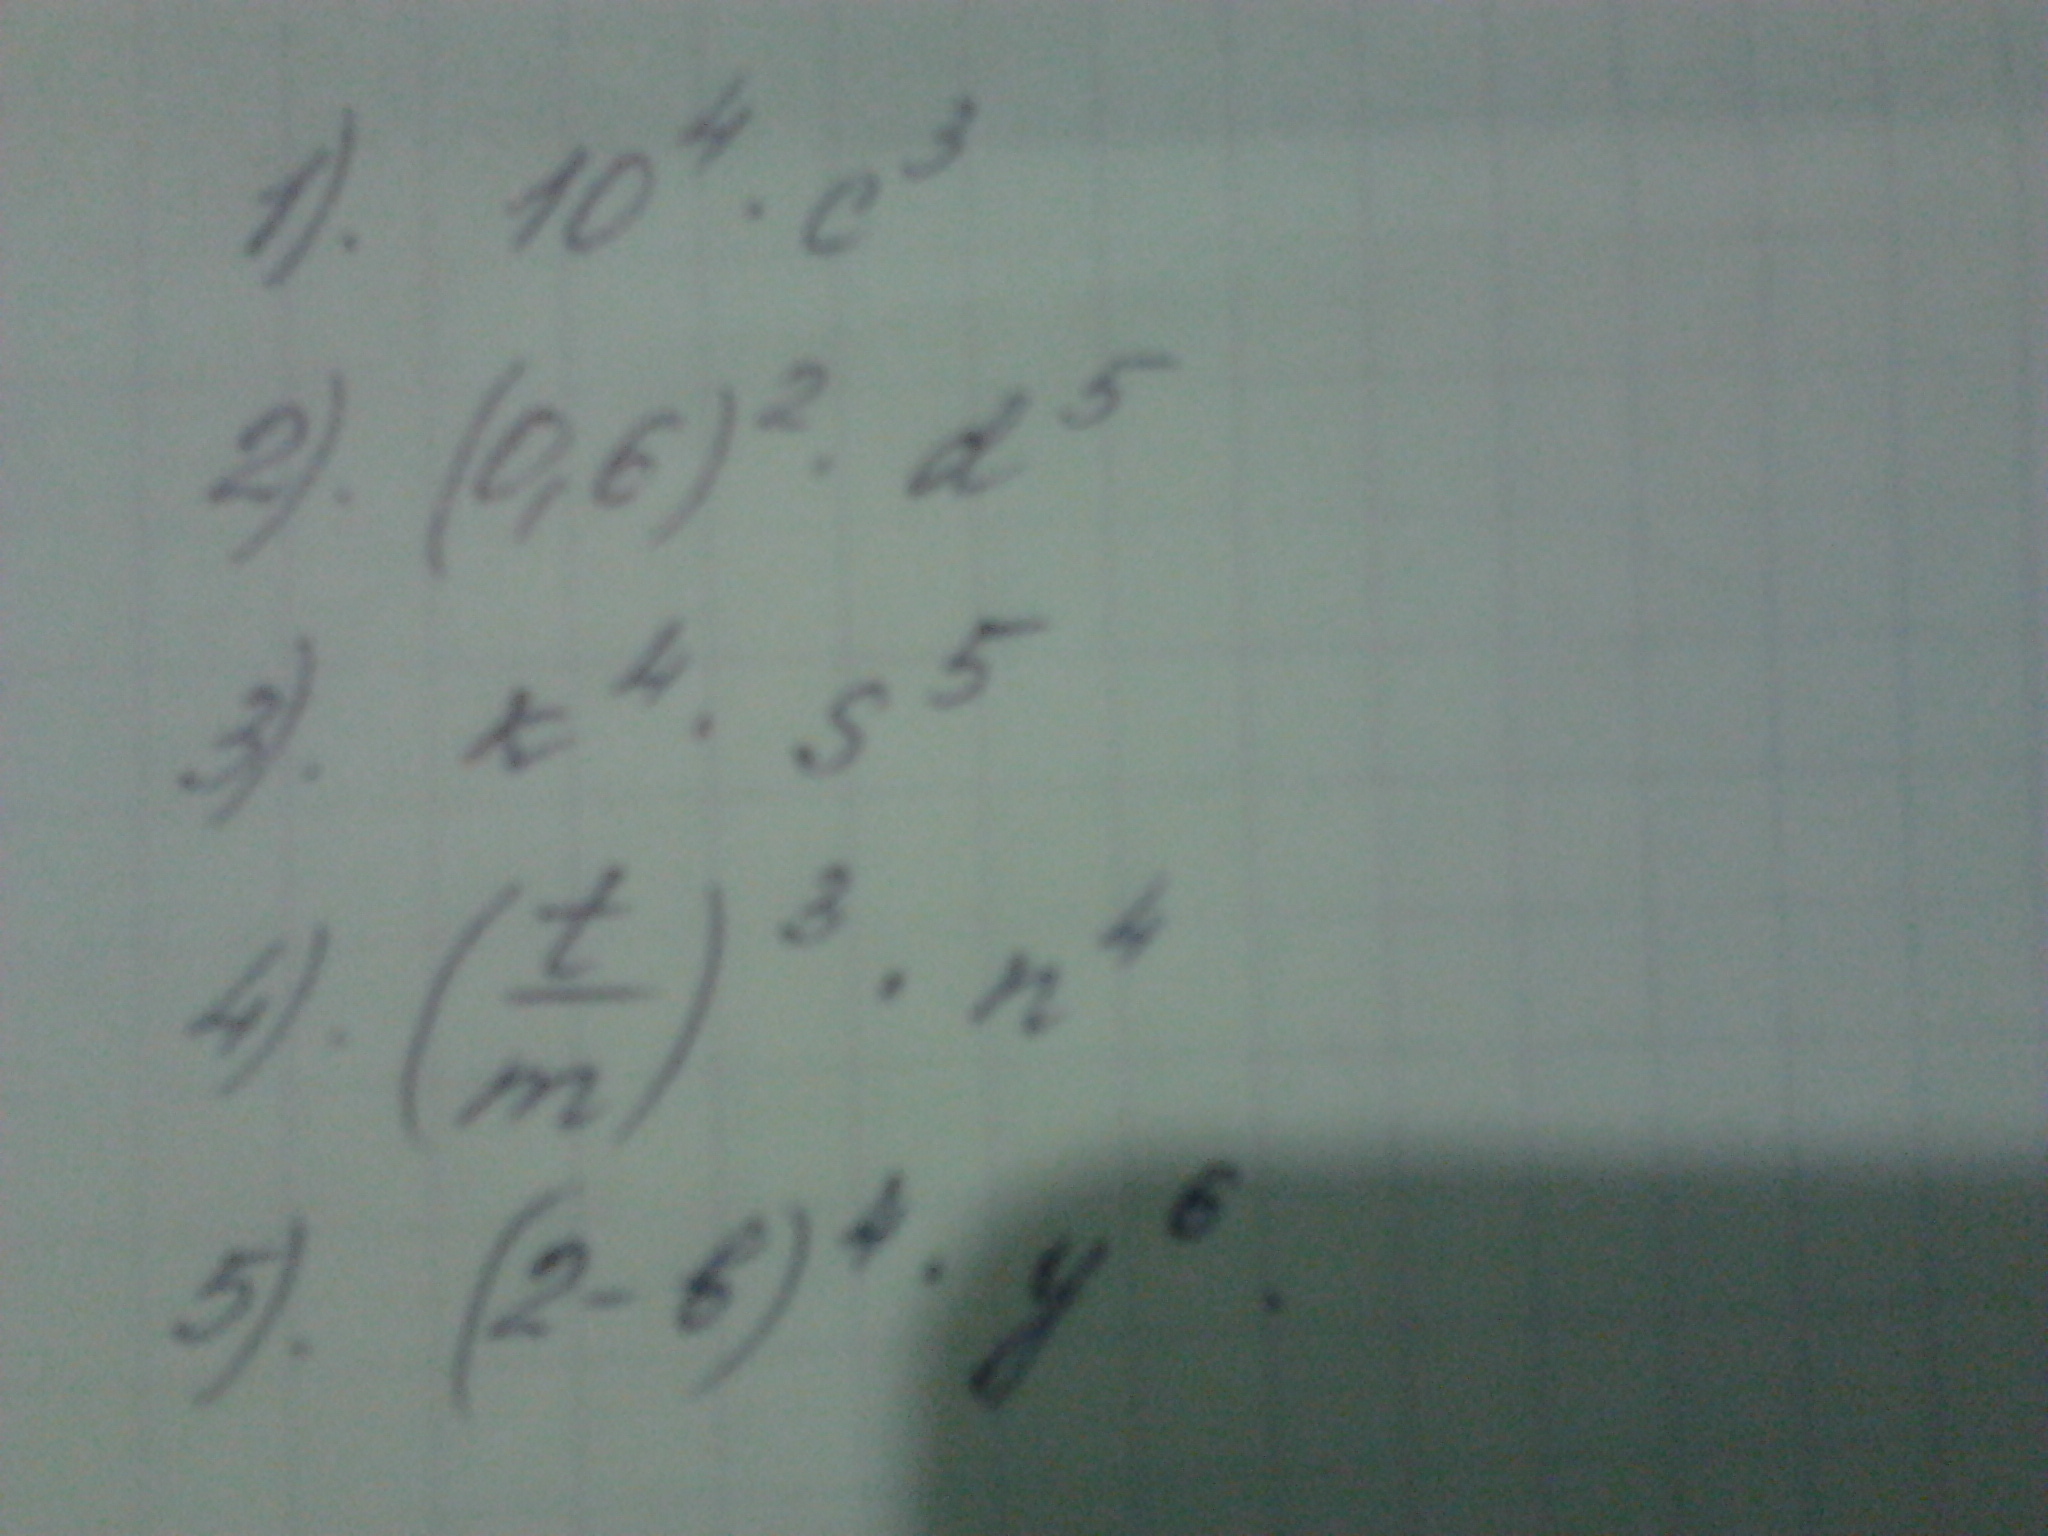 1). 10⁴ · c³
2). (0,6)² · d⁵
3). k⁴ · s⁵
4). (t/m)³ · n⁴
5). (2 - 6)⁴ · y⁶.